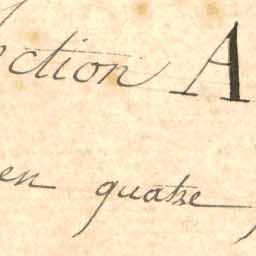 ection A
en quatre